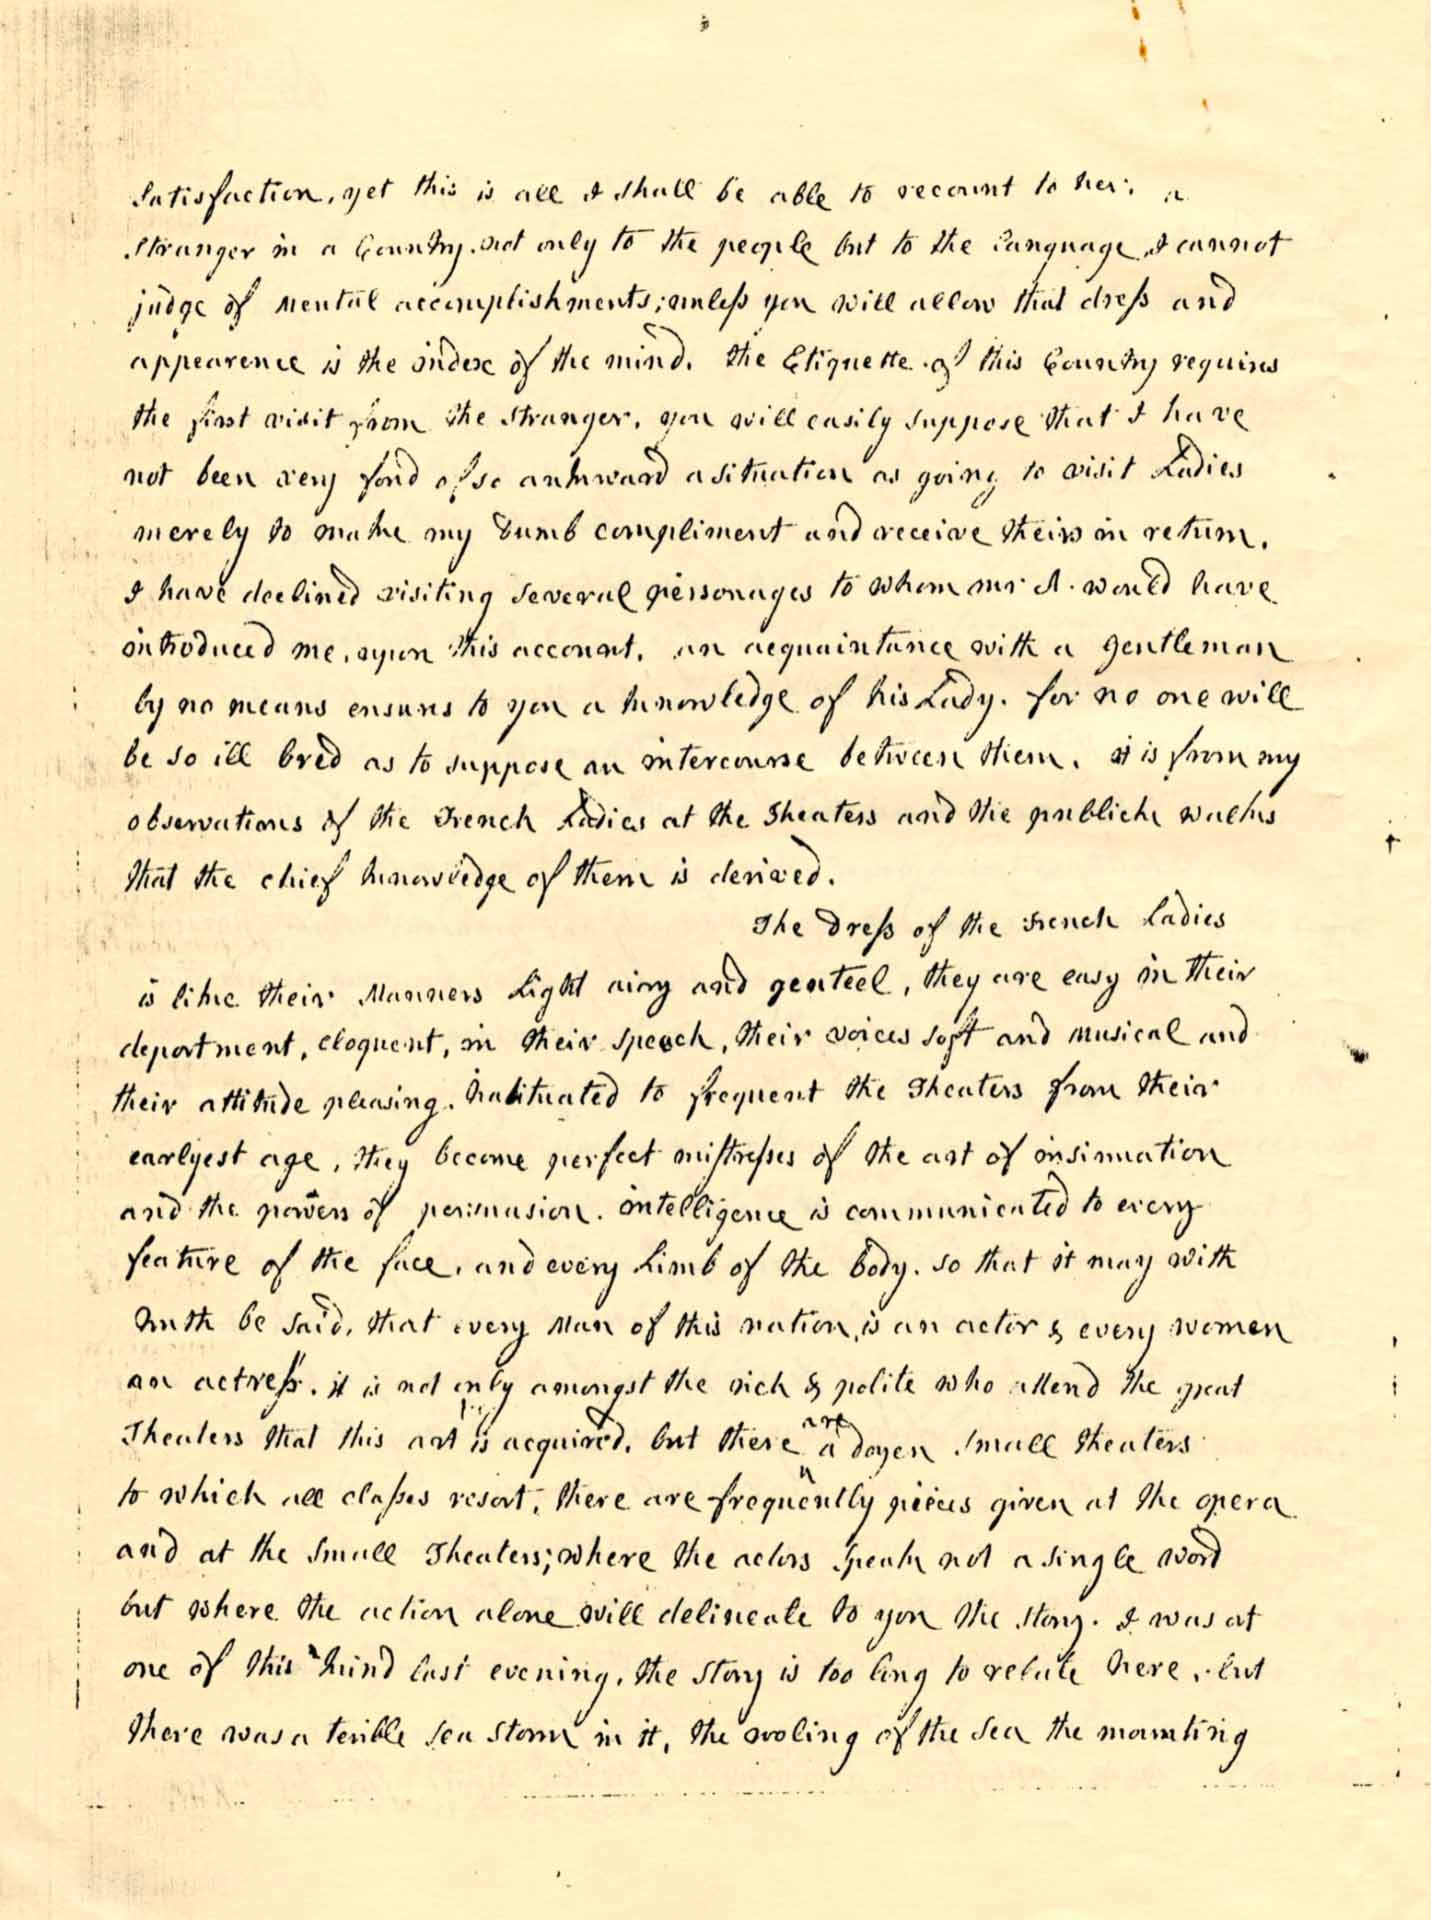 Satisfaction, yet this is all I shall be able to recount to her. a
Stranger in a Country not only to the people but to the Language I cannot
judge of Mental accomplishments; unless you will allow that dress and
appearence is the index of the mind. The Etiquette of this Country requires
the first visit from the stranger. you will easily suppose that I have
not been very fond of so awkward a situation as going to visit Ladies
merely to make my Dumb compliment and receive theirs in return.
I have declined visiting several personages to whom mr A. would have
introduced me, upon this account. an acquaintance with a gentleman
by no means ensures to you a knowledge of his Lady. for no one will
be so ill bred as to suppose an intercourse between them. it is from my
observations of the French Ladies at the Theaters and the publick walks
that the chief knowledge of them is derived.
The Dress of the French Ladies
is like their Manners Light airy and genteel, they are easy in their
deportment, eloquent, in their speech, their voices soft and musical and
their attitude pleasing. habituated to frequent the Theaters from their
earlyest age, they become perfect mistresses of the art of insinuation
and the powers of persuasion. intelligence is communicated to every
feature of the face, and every Limb of the body. so that it may with
truth be said, that every Man of this nation, is an actor & every women
an actress. it is not only amongst the rich & polite who attend the great
Theaters that this art is acquired, but there are a dozen small theaters
to which all classes resort, there are frequently pieces given at the opera
and at the small Theaters; where the actors speak not a single word
but where the action alone will delineate to you the story. I was at
one of this kind last evening, the story is too long to relate here, but
there was a terible sea storm in it, the woling of the sea the mounting